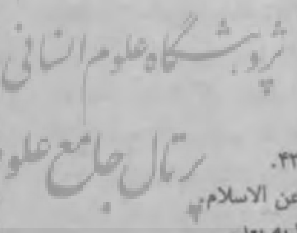 پژوهشگاه علوم انسانی
پرتال جامع علوم
۴۲.
عن الاسلام،